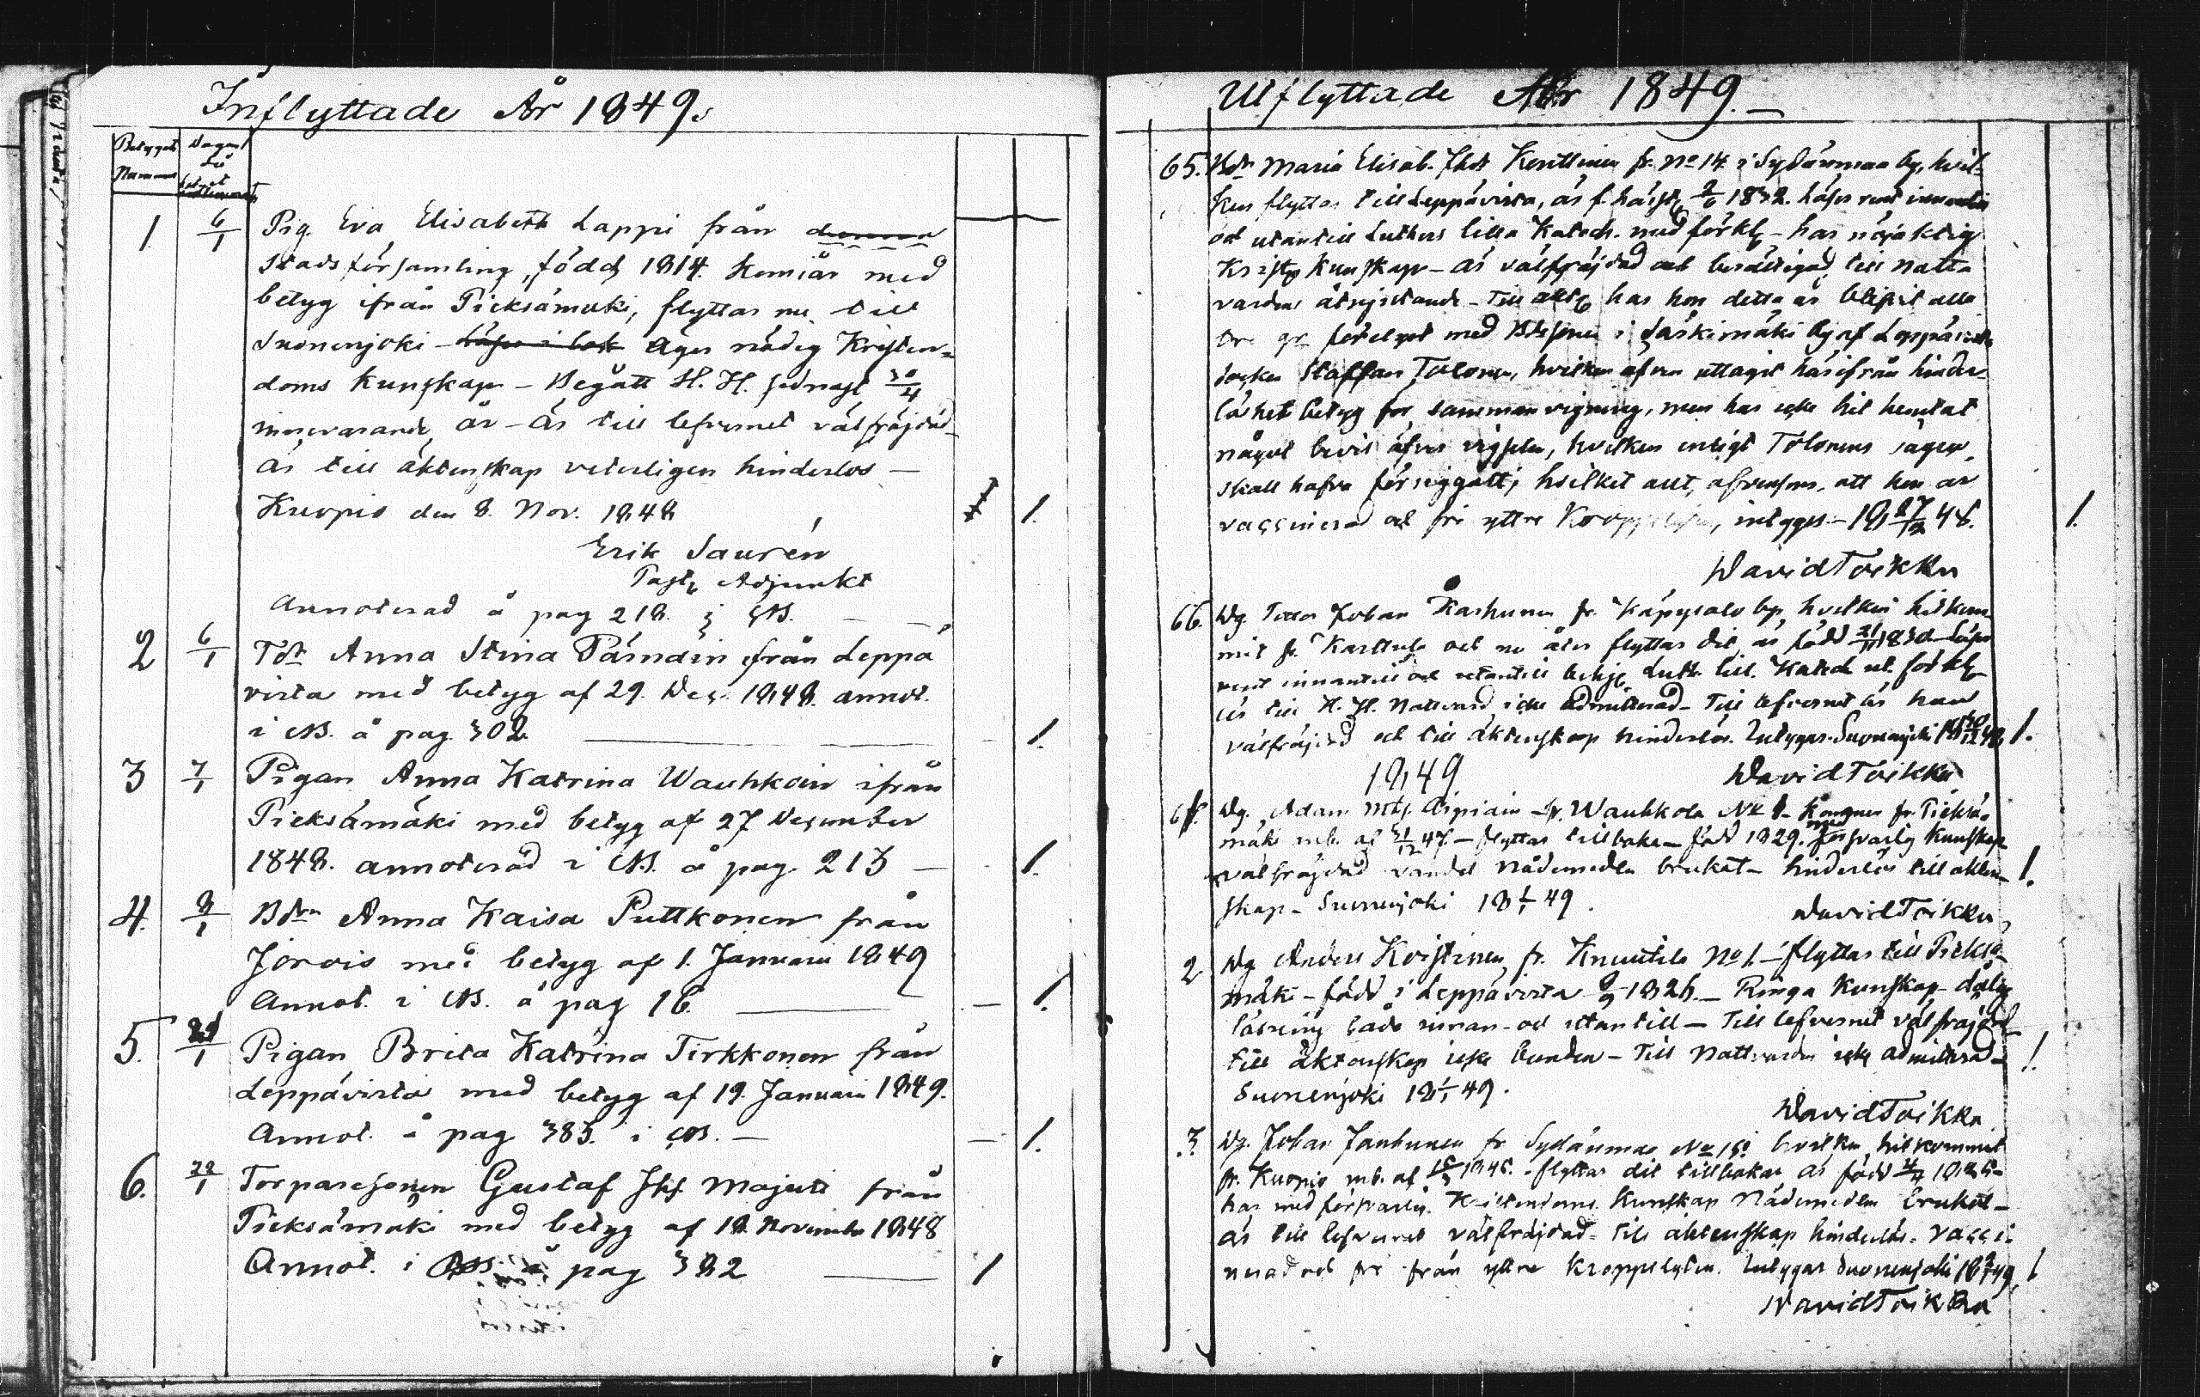 Inflyttade År 1849.
Betygets
Nummer
Dagen
då
1 6/1 Pig. Eva Elisabeth Lappi från
stads församling, född 1814. Kemiär med
betyg ifrån Pieksämäki, flyttar nu till
Suonenjoki - Läser i bok Äger nödig Kristen-
doms kunskap - Begått H. H. sednast 30/4
innevarande år - är till lefvernet välfräjdad -
är till äktenskap veterligen hinderlös -
Kuopio den 8. Nov. 1848 1.
Erik Saurén
Past. Adjunkt
Annoterad å pag 218. i
2 6/1 Anna Stina från Leppä
virta med betyg af 29. Dec. 1848. annot.
i å pag 302 1.
3 7/1 Pigan Anna Katrina Wauhkoin ifrån
Pieksämäki med betyg af 27 December
1848. annoterad i å pag 213 1.
4. 8/1 Anna Kaisa Puttkonen från
Jorois med betyg af 1. Januari 1849
Annot. i å pag 16. 1.
5. Pigan Brita Katrina Tirkkonen från
Leppävirta med betyg af 19. Januari 1849.
Annot. å pag 385. i 1.
6. Torparesonen Gustaf Majuri från
Pieksämäki med betyg af 18. November 1848
Annot. i å pag 382 1
Utflyttade År 1849.
65. Maria Elisab. fr. No 14 i Sydänmaa by, hvil-
ken flyttar till Leppävirta, är f. 1832. läser rent innantill
och utantill Luthers lilla Katech. med förkl. - har nöjaktig
Kristl. Kunskap - är välfräjdad och berättigad till Natt-
vardens åtnjutande - Till har hon detta år blifvit alla
tre ggr med i Saskimäki by af Leppävirta
socken Staffan Tolonen, hvilken äfven uttagit härifrån hinder-
löshet betyg för sammanvigning, men har icke hit hemtat
något bevis öfver vigseln, hvilken enligt Tolonens sägen,
skall hafva försiggått; hvilket allt, äfvensom, att hon är
vaccinerad och fri yttre intygas - 18 27/12 48. 1.
David Toikka
66. Dg. Johan Kashunen fr. Käpysalo by, hvilken hitkom-
mit fr. Karttula och nu åter flyttar dit, är född
rent innantill och utantill Luth. lill. Katech. förkl.
är till H. H. Nattvard icke admitterad - Till lefvernet är han
välfräjdad och till äktenskap hinderlös. Intygar. Suonenjoki 1.
1849 David Toikka
Dg. Adam fr. Wauhkola No 1 - fr. Pieksä-
mäki 47 - flyttar tillbaka - född 1829. med försvarlig kunskap
välfräjdad vandel nådemedlen brukat - hinderlös till äkten- 1.
skap - Suonenjoki 18 1/1 49.
David Toikka
2 Dg Anders fr. Knuutila No 1. - flyttar till Pieksä-
mäki - född i Leppävirta - Ringa kunskap - dålig
läsning både innan- och utantill - Till lefvernet välfräjdad
till äktenskap icke bunden - Till Nattvarden icke admitterad - 1.
Suonenjoki 18 1/1 49.
David Toikka
3. Dg. Johan Janhunen fr Sydänmaa No 15. hvilken hitkommit
fr. Kuopio flyttar dit tillbakar är född
har med försvarlig Kristendoms Kunskap Nådemedlen brukat -
är till lefvernet välfräjdad - till äktenskap hinderlös - vacci-
nerad och fri från yttre kroppslyten. Intygar Suonenjoki 1
David Toikka